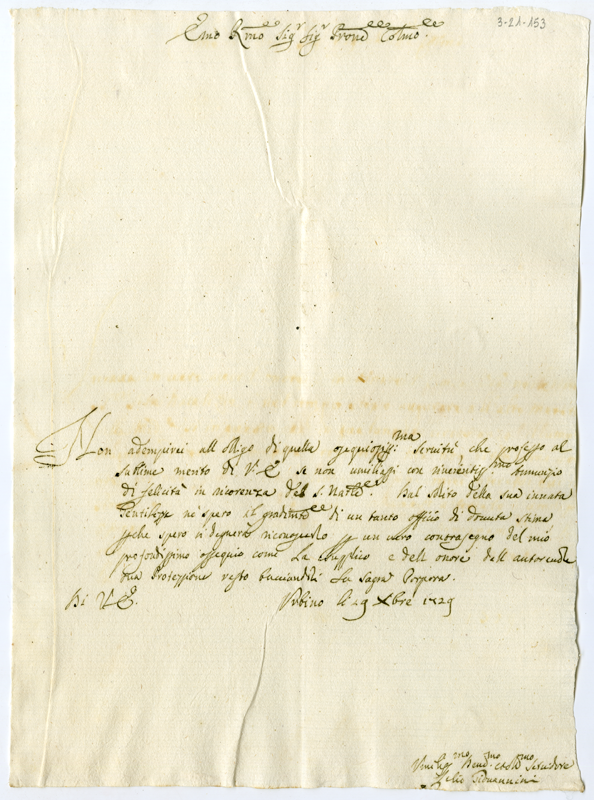 3-21-153
Emo Rmo Sigr Sigr Prone Colmo.
Non adempirei all obligo di quella ossequiosissma servitù che professo al
sublime merito di V. E. se non umiliassi con riverentissmo Annunzio
di felicità in ricorrenza del S. Natle. Dal solito della sua innata
Gentilezza ne spero il gradimto di un tanto officio di dovuta stima
che spero si degnerà riconoscerlo per un vero contrasegno del mio
profondissimo ossequio come La supplico e dell onore dell autorevole
sua Protezzione resto bacciandoli La Sagra Porpora.
Di V. E.
Urbino li 19 Xbre 1729
Umilmo Devmo Obblmo Servidore
Giovannini